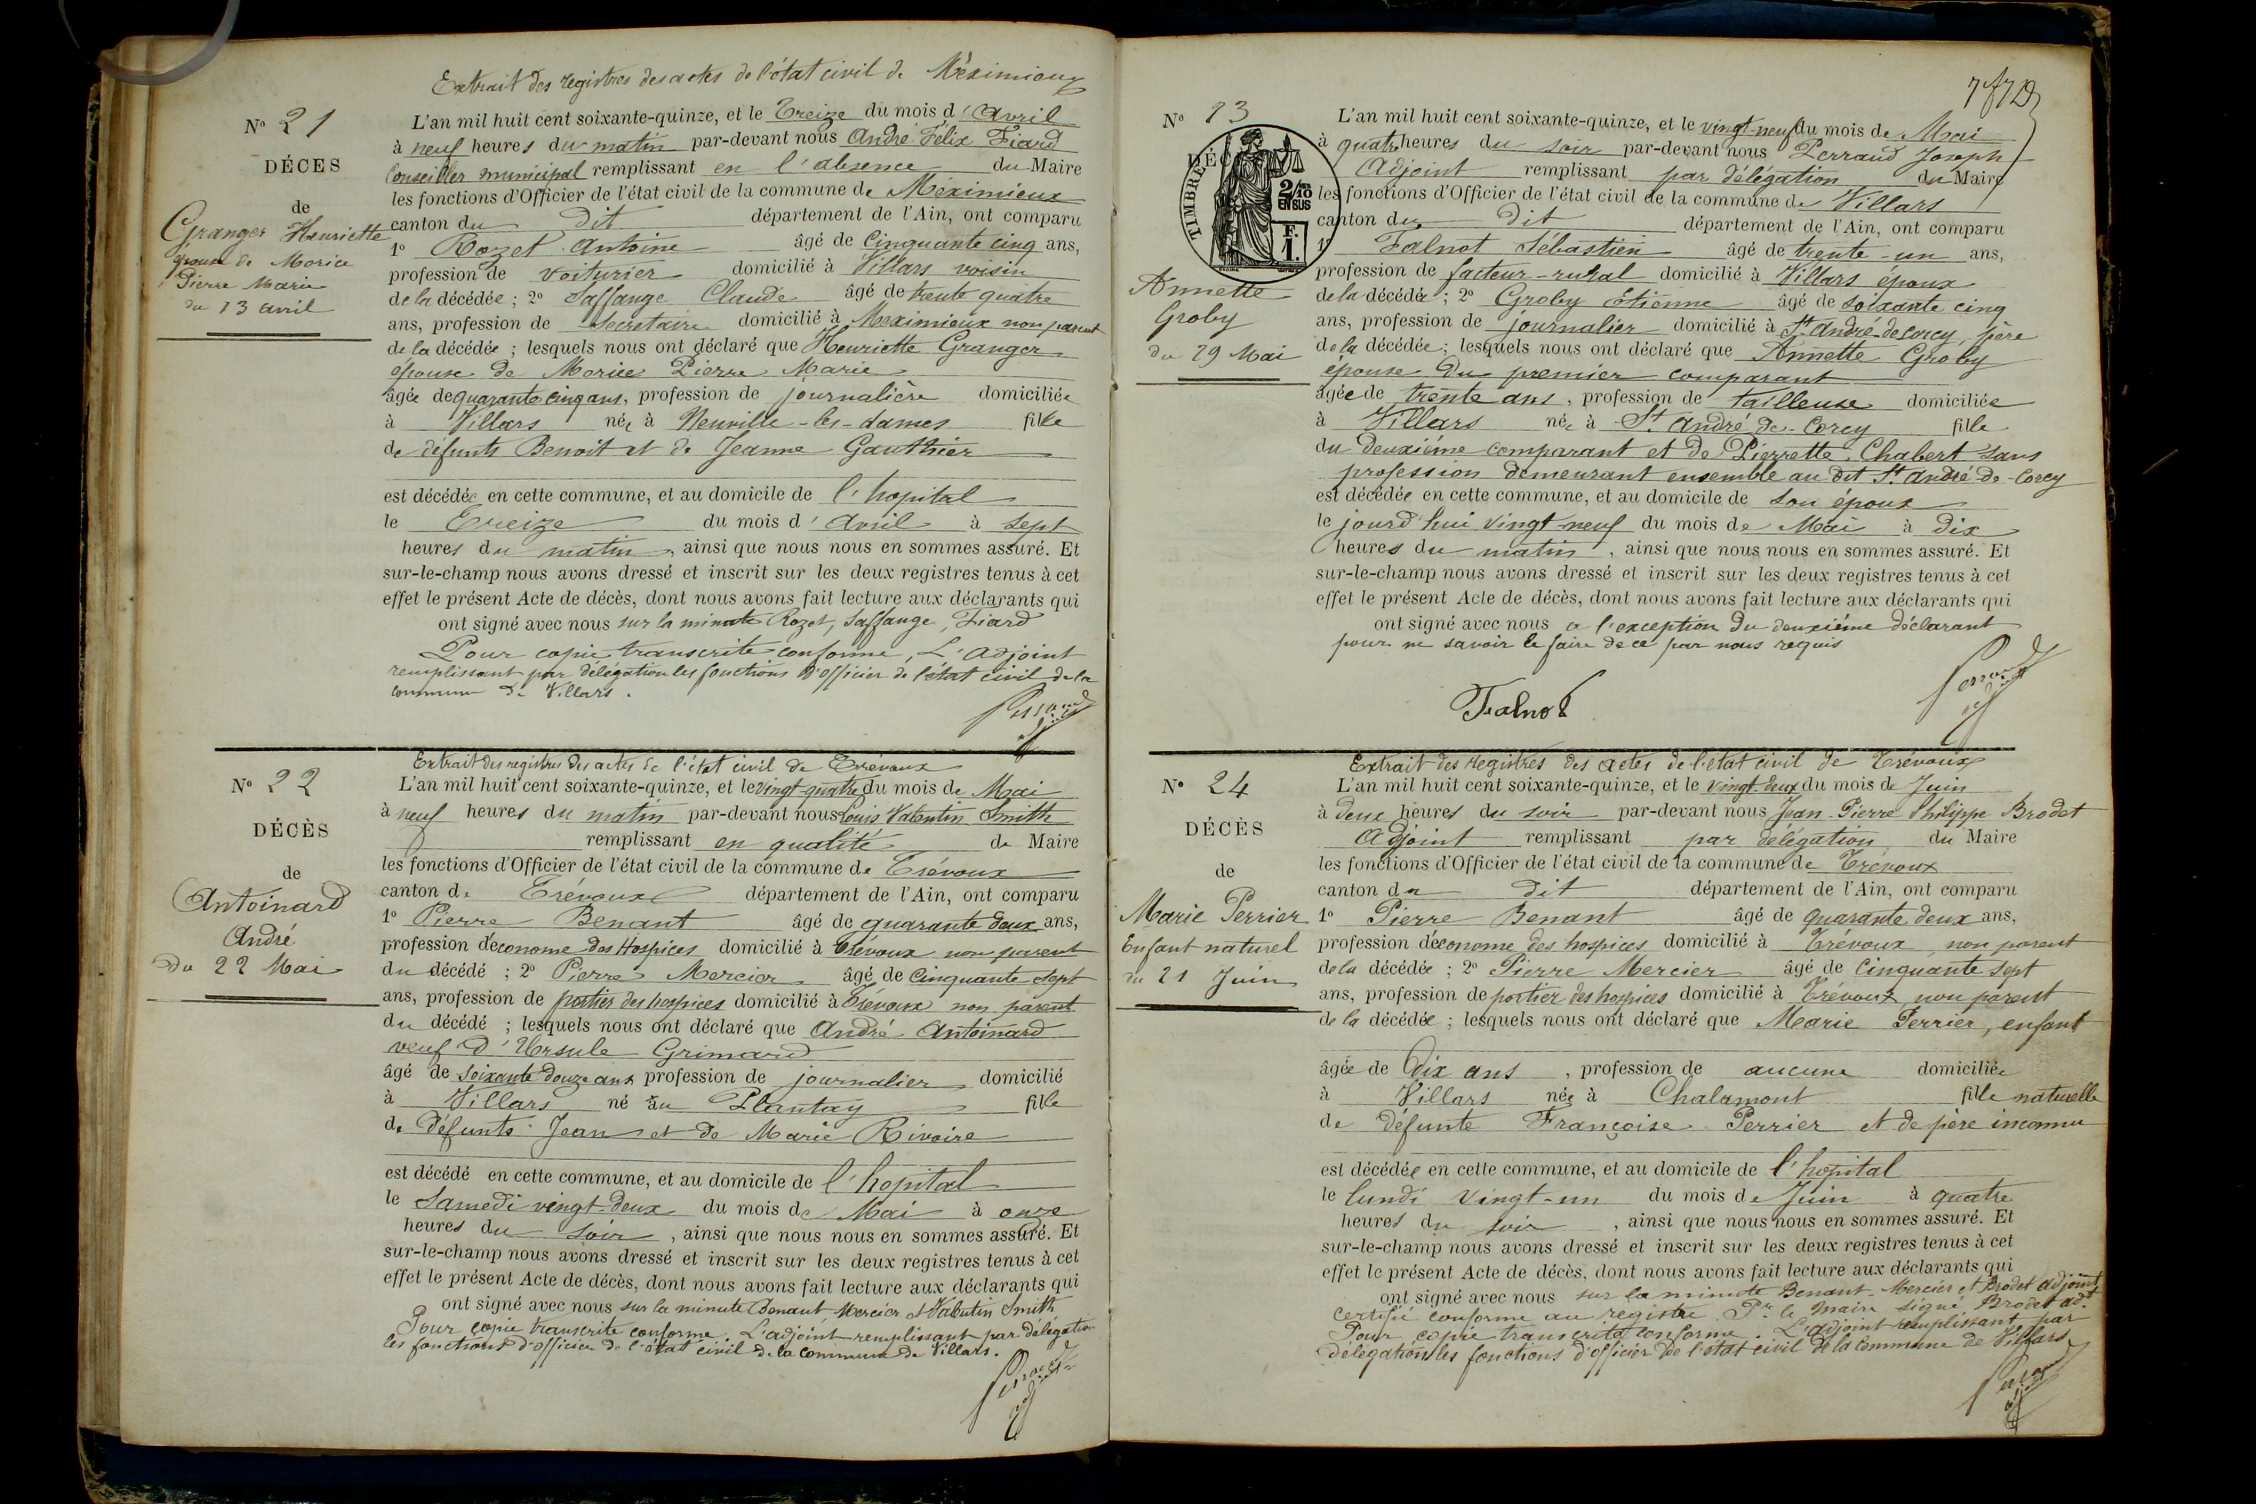 Extrait des registres des actes de l'état civil de Méximieux
N° 21
DÉCES
de
Granger Henriette
épouse de Morice
Pierre Marie
du 13 avril
L'an mil huit cent soixante-quinze, et le Treize du mois d'Avril
à neuf heures du matin par-devant nous André Félix Fiard
Conseiller municipal remplissant en l'absence du Maire
les fonctions d'Officier de l'état civil de la commune de Méximieux
canton du dit département de l'Ain, ont comparu
1° Rozet Antoine âgé de Cinquante cinq ans,
profession de voiturier domicilié à Villars voisin
de la décédée ; 2° Saffange Claude âgé de trente quatre
ans, profession de Secrétaire domicilié à Meximieux non parent
de la décédée ; lesquels nous ont déclaré que Henriette Granger
épouse de Morice Pierre Marie
âgée de quarante cinq ans, profession de journalière domiciliée
à Villars née à Neuville-les-dames fille
de défunts Benoit et de Jeanne Gauthier
est décédée en cette commune, et au domicile de l'hopital
le Treize du mois d'Avril à sept
heures du matin, ainsi que nous nous en sommes assuré. Et
sur-le-champ nous avons dressé et inscrit sur les deux registres tenus à cet
effet le présent Acte de décès, dont nous avons fait lecture aux déclarants qui
ont signé avec nous sur la minute Rozet, Saffange, Fiard
Pour copie transcrite conforme, L'adjoint
remplissant par délégation les fonctions d'officier de l'état civil de la
commune de Villars.
Perraud
Extrait des registres des actes de l'état civil de Trévoux
N° 22
DÉCÈS
de
Antoinard
André
Du 22 Mai
L'an mil huit cent soixante-quinze, et le vingt-quatre du mois de Mai
à neuf heures du matin par-devant nous Louis Valentin Smith
remplissant en qualité de Maire
les fonctions d'Officier de l'état civil de la commune de Trévoux
canton de Trévoux département de l'Ain, ont comparu
1° Pierre Benant âgé de quarante deux ans,
profession d'économe des Hospices domicilié à Trévoux non parent
du décédé ; 2° Pierre Mercier âgé de Cinquante sept
ans, profession de portier des hospices domicilié à Trévoux non parent
du décédé ; lesquels nous ont déclaré que André Antoinard
veuf d'Ursule Grimard
âgé de soixante douze ans profession de journalier domicilié
à Villars né au Plantay fille
de défunts Jean et de Marie Rivoire
est décédé en cette commune, et au domicile de l'hopital
le Samedi vingt-deux du mois de Mai à onze
heures du soir, ainsi que nous nous en sommes assuré. Et
sur-le-champ nous avons dressé et inscrit sur les deux registres tenus à cet
effet le présent Acte de décès, dont nous avons fait lecture aux déclarants qui
ont signé avec nous sur la minute Benant Mercier et Valentin Smith
Pour copie transcrite conforme. L'adjoint remplissant par délégation
les fonctions d'officier de l'état civil de la commune de Villars.
Perraud
N° 23
DÉC
TIMBRE
2/10 EN SUS
F. 1.
Annette
Groby
du 29 Mai
L'an mil huit cent soixante-quinze, et le vingt-neuf du mois de Mai
à quatre heures du soir par-devant nous Perraud Joseph
Adjoint remplissant par délégation du Maire
les fonctions d'Officier de l'état civil de la commune de Villars
canton du dit département de l'Ain, ont comparu
1° Falnot Sébastien âgé de trente-un ans,
profession de facteur-rural domicilié à Villars époux
de la décédée ; 2° Groby Etienne âgé de soixante cinq
ans, profession de journalier domicilié à St André de Corcy, père
de la décédée ; lesquels nous ont déclaré que Annette Groby
épouse du premier comparant
âgée de trente ans, profession de tailleuse domiciliée
à Villars née à St André-de-Corcy fille
du deuxième comparant et de Pierrette Chabert sans
profession demeurant ensemble au dit St André-de-Corcy
est décédée en cette commune, et au domicile de son époux
le jourd'hui vingt-neuf du mois de Mai à dix
heures du matin, ainsi que nous nous en sommes assuré. Et
sur-le-champ nous avons dressé et inscrit sur les deux registres tenus à cet
effet le présent Acte de décès, dont nous avons fait lecture aux déclarants qui
ont signé avec nous a l'exception du deuxième déclarant
pour ne savoir le faire de ce par nous requis
Falnot
Perraud
Extrait des registres des actes de l'état civil de Trévoux
N° 24
DÉCÈS
de
Marie Perrier
Enfant naturel
du 21 Juin
L'an mil huit cent soixante-quinze, et le vingt-deux du mois de Juin
à deux heures du soir par-devant nous Jean Pierre Philippe Brodet
Adjoint remplissant par délégation du Maire
les fonctions d'Officier de l'état civil de la commune de Trévoux
canton du dit département de l'Ain, ont comparu
1° Pierre Benant âgé de quarante deux ans,
profession d'économe des hospices domicilié à Trévoux non parent
de la décédée ; 2° Pierre Mercier âgé de Cinquante sept
ans, profession de portier des hospices domicilié à Trévoux non parent
de la décédée ; lesquels nous ont déclaré que Marie Perrier, enfant
âgée de Dix ans, profession de aucune domiciliée
à Villars née à Chalamont fille naturelle
de défunte Françoise Perrier et de père inconnu
est décédée en cette commune, et au domicile de l'hopital
le lundi vingt-un du mois de Juin à quatre
heures du soir, ainsi que nous nous en sommes assuré. Et
sur-le-champ nous avons dressé et inscrit sur les deux registres tenus à cet
effet le présent Acte de décès, dont nous avons fait lecture aux déclarants qui
ont signé avec nous sur la minute Benant Mercier et Brodet adjoint
Certifié conforme au registre Pr le Maire signé Brodet adt
Pour copie transcrite conforme. L'adjoint remplissant par
délégation les fonctions d'officier de l'état civil de la commune de Villars
Perraud